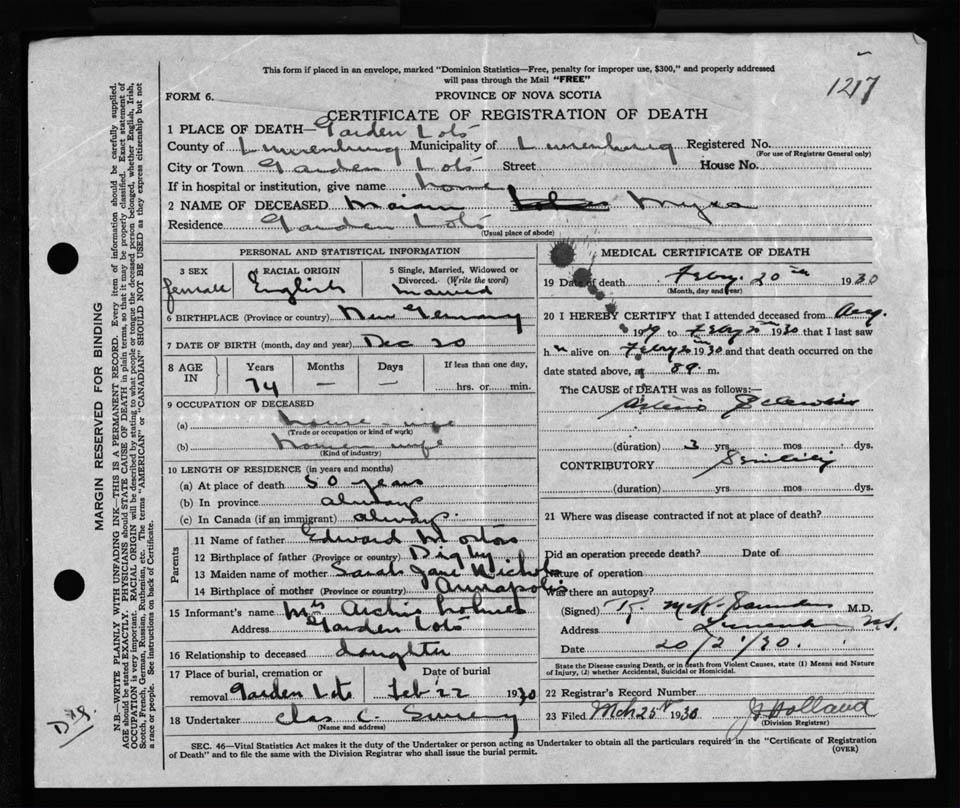 This form if placed in an envelope, marked "Dominion Statistics—Free, penalty for improper use, $300," and properly addressed
will pass through the Mail "FREE"
1217
FORM 6.
PROVINCE OF NOVA SCOTIA
CERTIFICATE OF REGISTRATION OF DEATH
1 PLACE OF DEATH— Garden Lots
County of Lunenburg Municipality of Lunenburg Registered No.
(For use of Registrar General only)
City or Town Garden Lots Street House No.
If in hospital or institution, give name home
2 NAME OF DECEASED Myra
Residence Garden Lots
(Usual place of abode)
PERSONAL AND STATISTICAL INFORMATION
3 SEX female
4 RACIAL ORIGIN English
5 Single, Married, Widowed or
Divorced. (Write the word)
married
6 BIRTHPLACE (Province or country) New Germany
7 DATE OF BIRTH (month, day and year) Dec 20
8 AGE IN
Years Months Days If less than one day,
74 — — hrs. or min.
9 OCCUPATION OF DECEASED
(a) house-wife
(Trade or occupation or kind of work)
(b) house-wife
(Kind of industry)
10 LENGTH OF RESIDENCE (in years and months)
(a) At place of death 50 years
(b) In province always
(c) In Canada (if an immigrant) always
Parents
11 Name of father Edward
12 Birthplace of father (Province or country) Digby
13 Maiden name of mother Sarah Jane Nichol
14 Birthplace of mother (Province or country) Annapolis
15 Informant's name Mrs Archie
Address Garden Lots
16 Relationship to deceased daughter
17 Place of burial, cremation, or Date of burial
removal Garden Lots Feb 22 1930
18 Undertaker Chas C.
(Name and address)
MEDICAL CERTIFICATE OF DEATH
19 Date of death Feby. 20th 1930
(Month, day and year)
20 I HEREBY CERTIFY that I attended deceased from Aug.
1929 to Feby 1930 that I last saw
h alive on Feby 1930 and that death occurred on the
date stated above, at m.
The CAUSE of DEATH was as follows:—
Arterio Sclerosis
(duration) 3 yrs mos dys.
CONTRIBUTORY Senility
(duration) yrs mos dys.
21 Where was disease contracted if not at place of death?
Did an operation precede death? Date of
Nature of operation
Was there an autopsy?
(Signed) R. McK. Saunders M.D.
Address Lunenburg N.S.
Date 20/2/30.
State the Disease causing Death, or in death from Violent Causes, state (1) Means and Nature
of Injury, (2) whether Accidental, Suicidal or Homicidal.
22 Registrar's Record Number
23 Filed Mch 25th 1930 Holland
(Division Registrar)
SEC. 46—Vital Statistics Act makes it the duty of the Undertaker or person acting as Undertaker to obtain all the particulars required in the "Certificate of Registration
of Death" and to file the same with the Division Registrar who shall issue the burial permit.
(OVER)
MARGIN RESERVED FOR BINDING
N.B.—WRITE PLAINLY WITH UNFADING INK—THIS IS A PERMANENT RECORD. Every item of information should be carefully supplied.
AGE should be stated EXACTLY. PHYSICIANS should STATE CAUSE OF DEATH in plain terms, so that it may be properly classified. Exact statement of
OCCUPATION is very important. RACIAL ORIGIN will be described by stating to what people or tongue the deceased person belonged, whether English, Irish,
Scotch, French, German, Russian, Ruthenian, etc. The terms "AMERICAN" or "CANADIAN" SHOULD NOT BE USED as they express citizenship but not
a race or people. See instructions on back of Certificate.